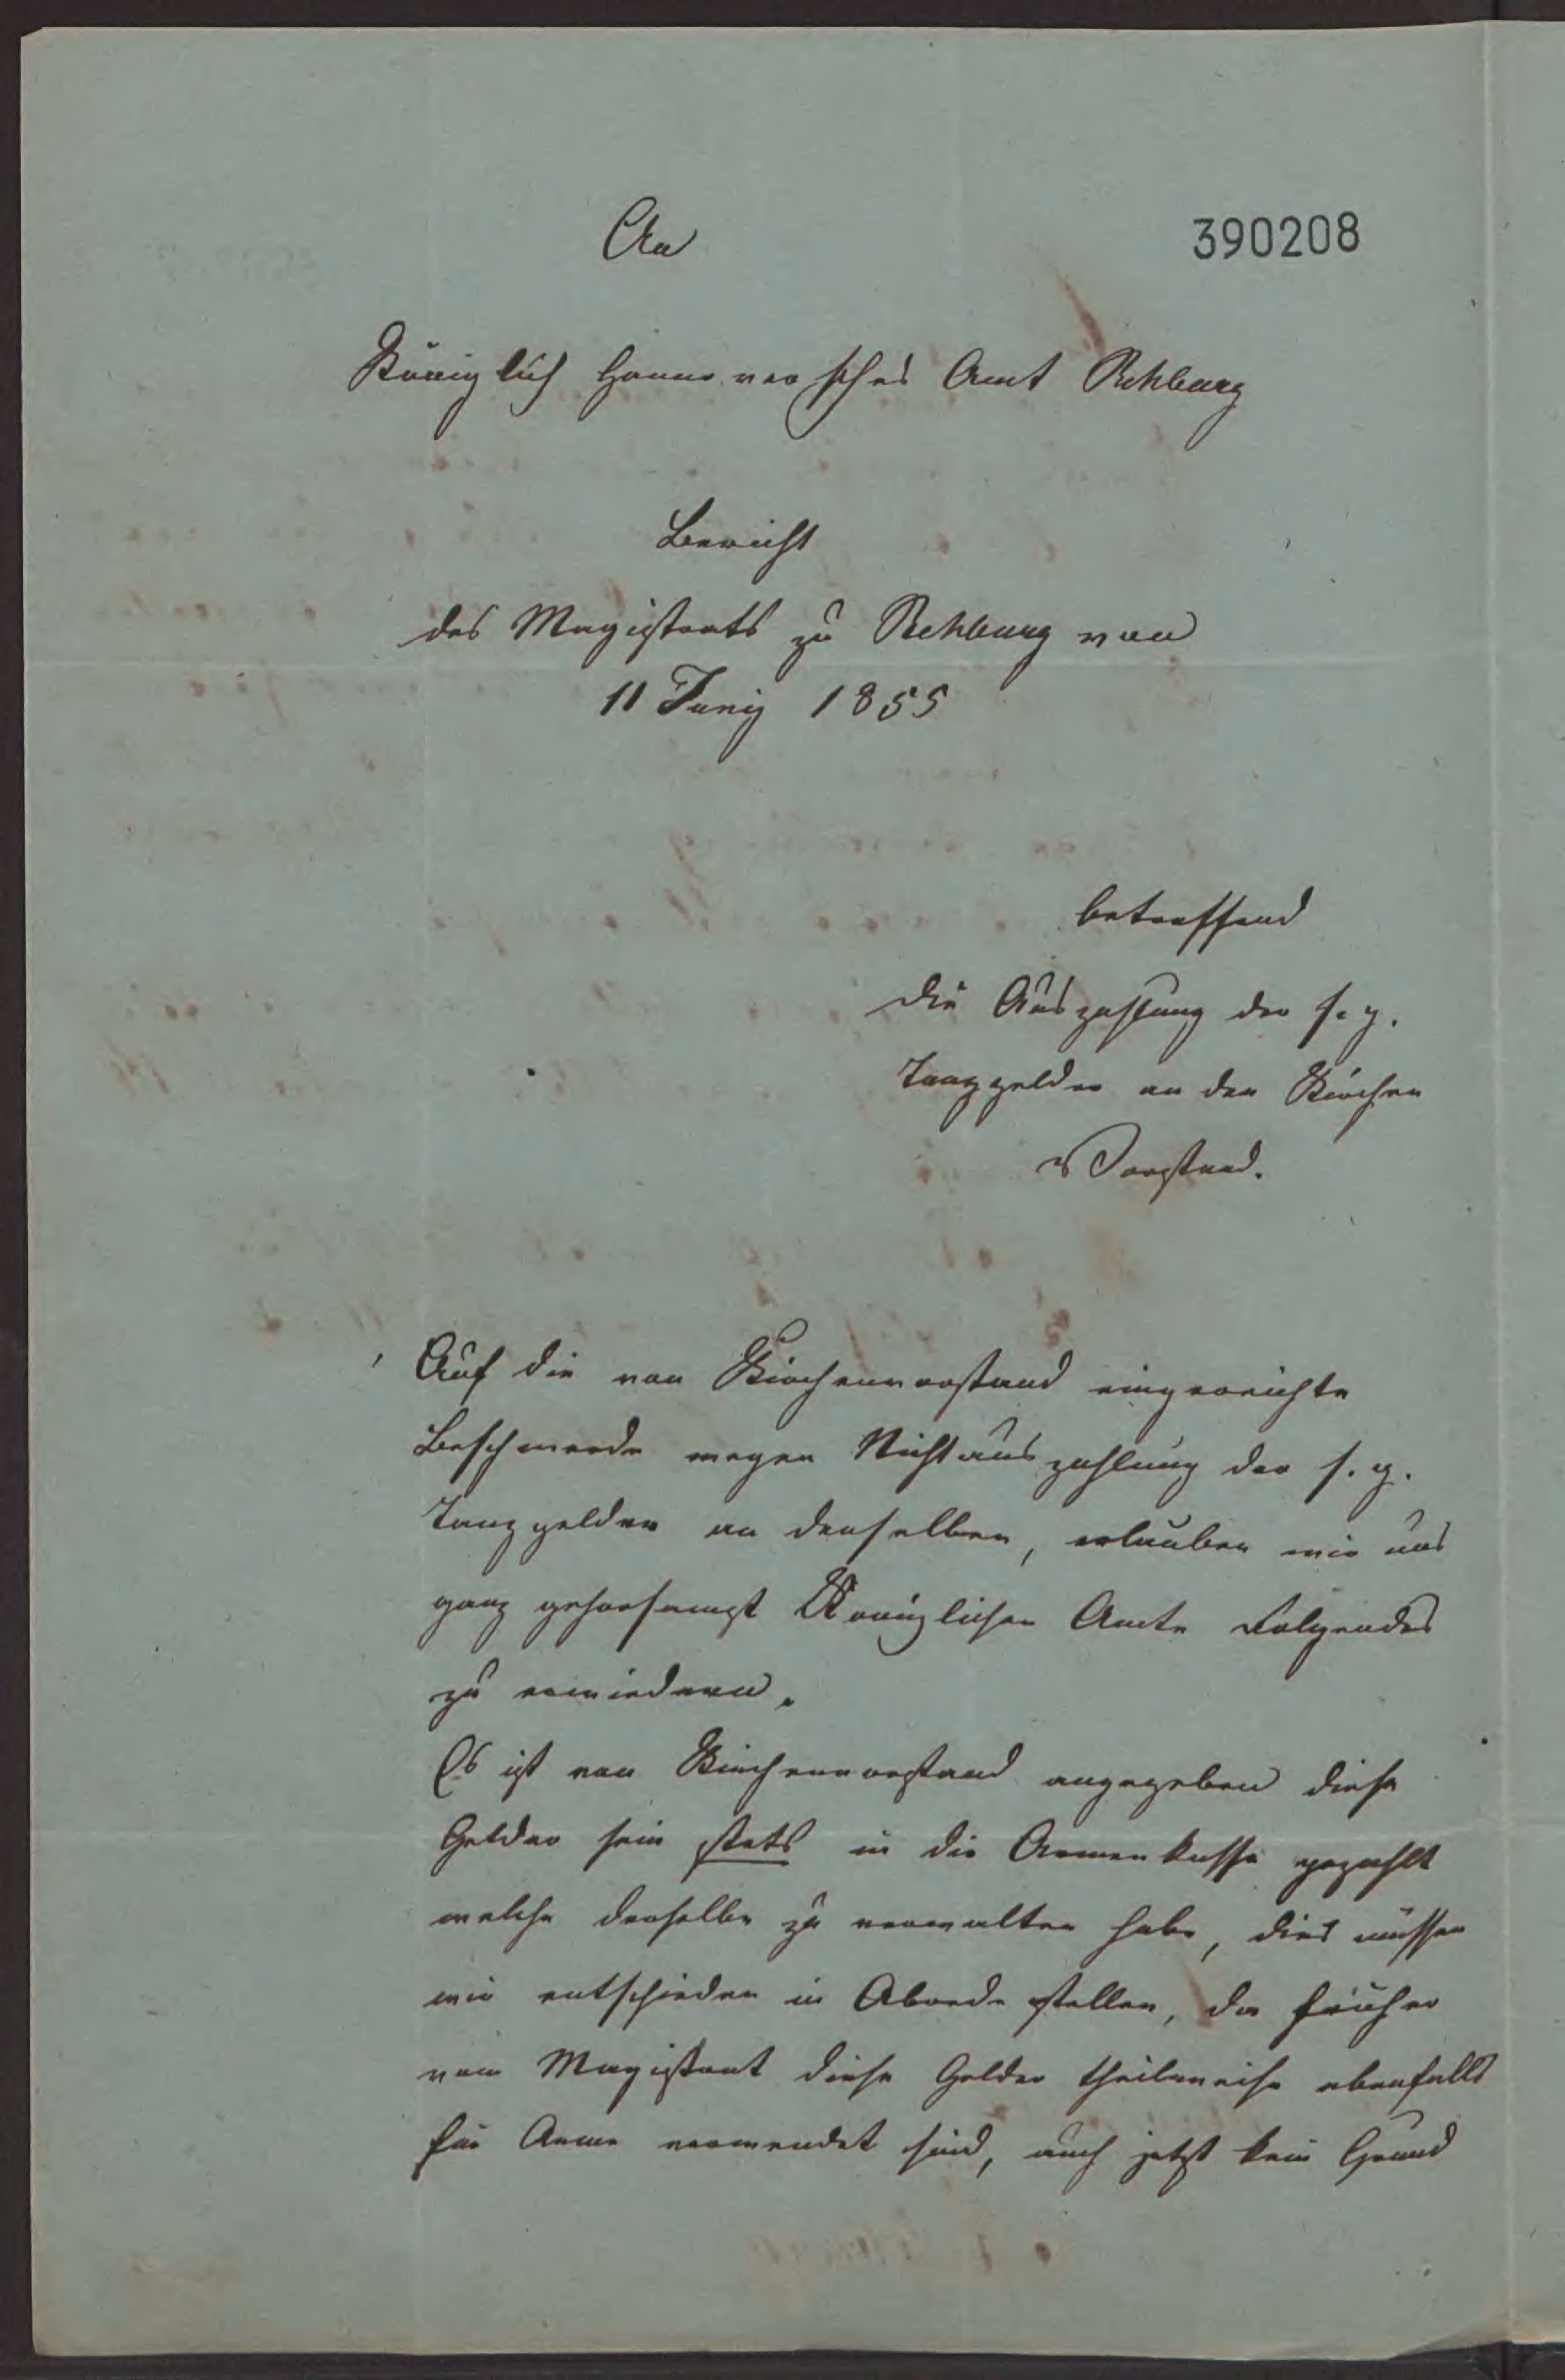 An
390208
Königlich Hannoversches Amt Rehburg
Bericht
des Magistrats zu Rehburg von
11 Junij 1855
betreffend
die Auszahlung der s. g.
Tanzgelder an den Kirchen
Vorstand.
Auf die von Kirchenvorstand eingereichte
Beschwerde wegen Nichtauszahlung der s. g.
Tanzgelder an denselben, erlauben wir uns
ganz gehorsamst Königlichen Amte Folgendes
zu erwiedern.
Es ist von Kirchenvorstand angegeben diese
Gelder sein stets in die Armenkasse gezahlt
welche derselbe zu verwalten habe, dies müssen
wir entschieden in Abrede stellen, da früher
vom Magistrat diese Gelder theilweise ebenfalls
für Arme verwendet sind, auch jetzt kein Grund